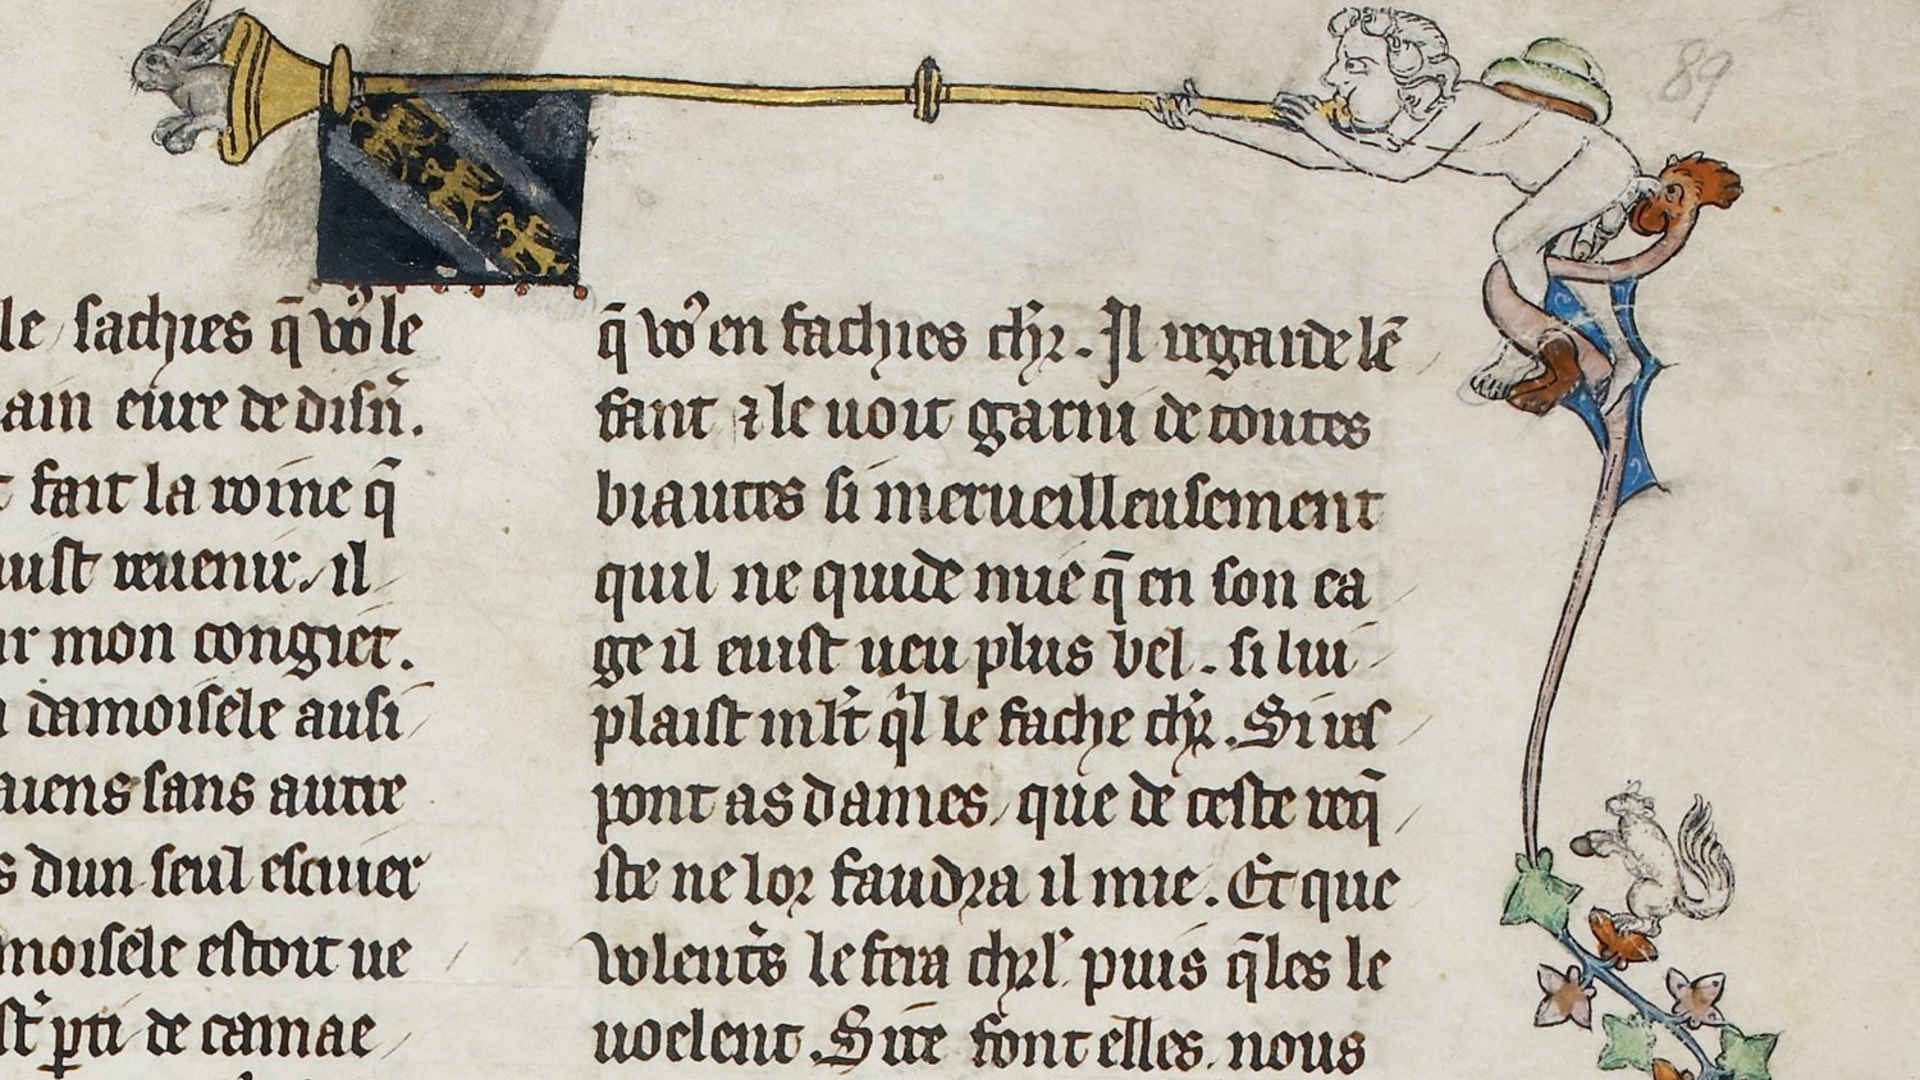 89
le sachies q̄ voꝰ le
ain eure de disn̄.
t fait la roine q̄
uist reuenir. il
ur mon congiet.
damoisele ausi
aiens sans autre
s dun seul escuier
moisele estoit ue
st' ꝑti de camae
q̄ voꝰ en fachies chꝛ̄. Il regarde lē
fant ⁊ le uoit garni de toutes
biautes si merueilleusement
quil ne quide mie q̄ en son ea
ge il euist ueu plus bel. si lui
plaist ml't q'l le fache chꝛ̄. Si res
pont as dames, que de ceste req̄
ste ne loꝛ faudꝛa il mie. Et que
volent's le fera chꝛ̄l' puis q̄les le
voelent. Sire font elles. nous